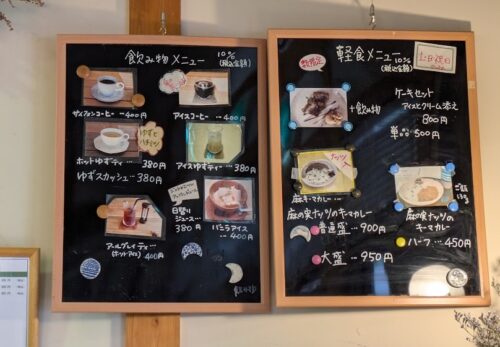 飲み物メニュー 10%
(税込金額)
サイフォンコーヒー … 400円
アイスコーヒー … 400円
ゆずと
ハチミツ
ホットゆずティ … 380円
アイスゆずティー … 380
ゆずスカッシュ … 380円
日替り
ジュース …
380円
バニラアイス
… 400円
アールグレイティー
(ホットアイス) 400円
軽食メニュー 10%
(税込金額)
土日祝日
+飲み物
ケーキセット
アイスクリーム添え
800円
単品 500円
ナッツ
入
麻キーマカレー
麻の実ナッツのキーマカレー
普通盛 … 900円
大盛 … 950円
麻の実ナッツの
キーマカレー
ハーフ … 450円